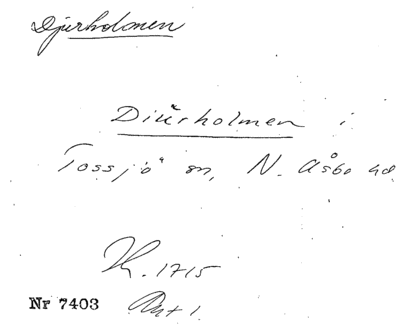 Djurholmen
Diürholmen i
Tossjö sn, N. Åsbo hd
K. 1715
Nr 7403 Akt 1.